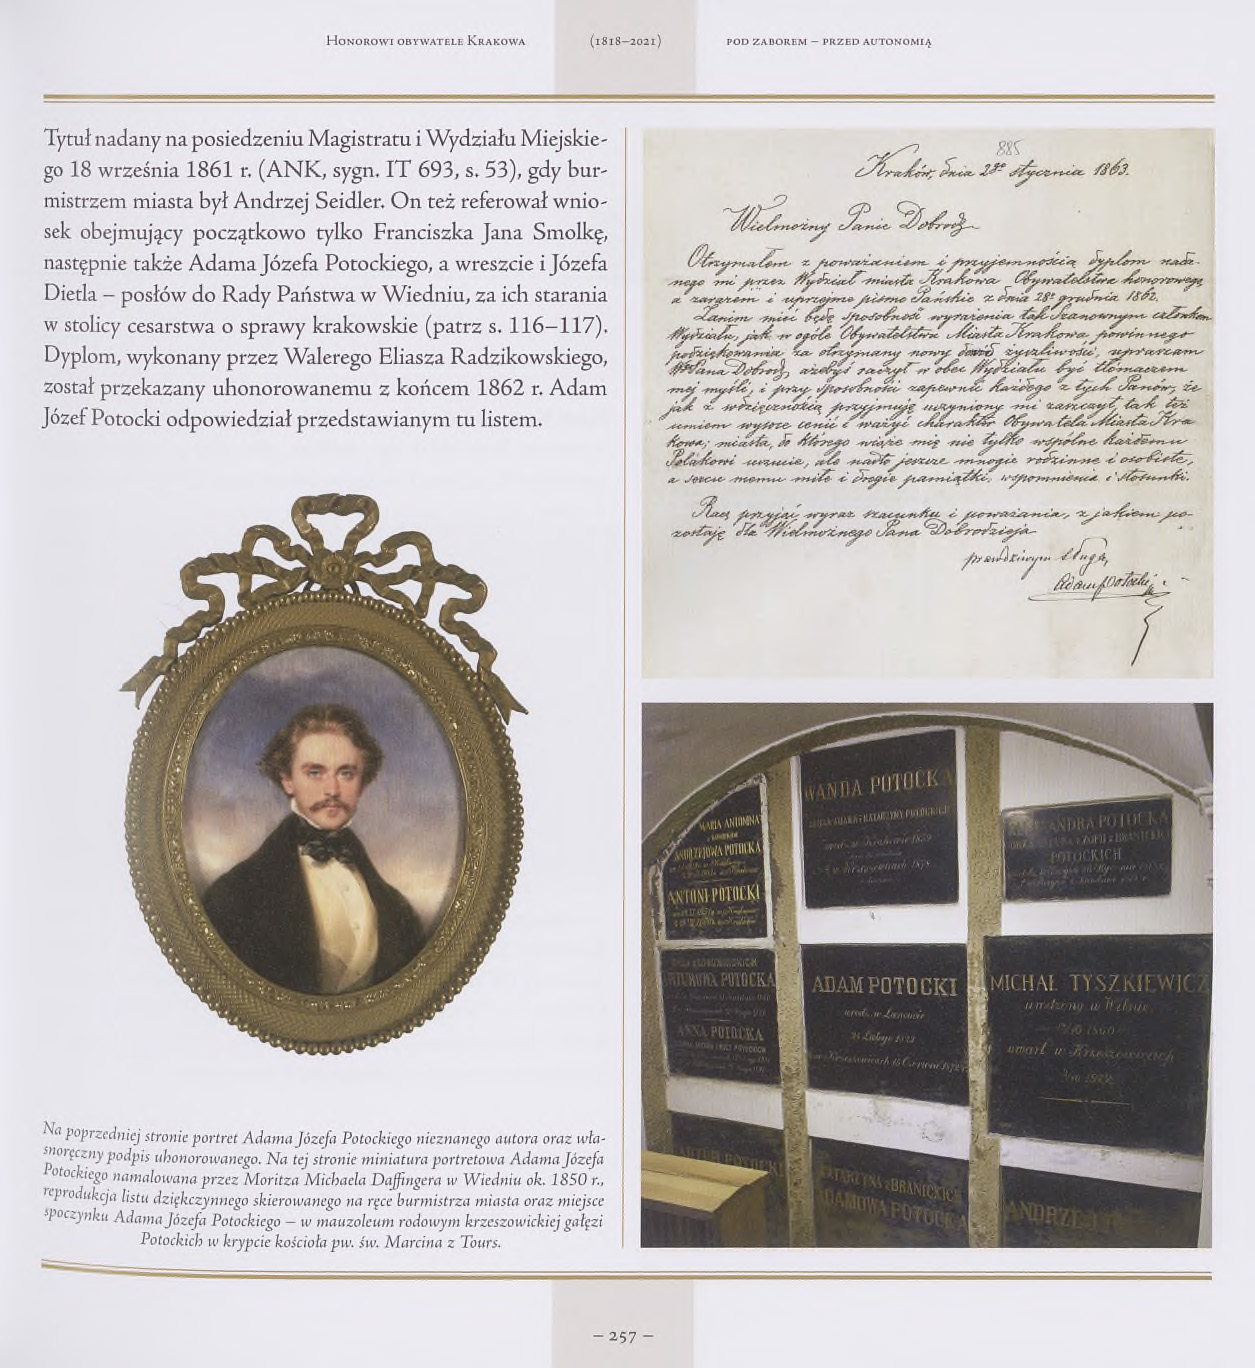 Honorowi obywatele Krakowa (1818–2021) pod zaborem – przed autonomią
Tytuł nadany na posiedzeniu Magistratu i Wydziału Miejskie-
go 18 września 1861 r. (ANK, sygn. IT 693, s. 53), gdy bur-
mistrzem miasta był Andrzej Seidler. On też referował wnio-
sek obejmujący początkowo tylko Franciszka Jana Smolkę,
następnie także Adama Józefa Potockiego, a wreszcie i Józefa
Dietla – posłów do Rady Państwa w Wiedniu, za ich starania
w stolicy cesarstwa o sprawy krakowskie (patrz s. 116–117).
Dyplom, wykonany przez Walerego Eliasza Radzikowskiego,
został przekazany uhonorowanemu z końcem 1862 r. Adam
Józef Potocki odpowiedział przedstawianym tu listem.
Na poprzedniej stronie portret Adama Józefa Potockiego nieznanego autora oraz wła-
snoręczny podpis uhonorowanego. Na tej stronie miniatura portretowa Adama Józefa
Potockiego namalowana przez Moritza Michaela Daffingera w Wiedniu ok. 1850 r.,
reprodukcja listu dziękczynnego skierowanego na ręce burmistrza miasta oraz miejsce
spoczynku Adama Józefa Potockiego – w mauzoleum rodowym krzeszowickiej gałęzi
Potockich w krypcie kościoła pw. św. Marcina z Tours.
885
Kraków, dnia 28go stycznia 1863.
Wielmożny Panie Dobrodz.
Otrzymałem z poważaniem i przyjemnością dyplom nada-
nego mi przez Wydział miasta Krakowa Obywatelstwa honorowego
a zarazem i uprzejme pismo Pańskie z dnia 28go grudnia 1862.
Zanim mieć będę sposobność wyrażenia tak Szanownym członkom
Wydziału, jak w ogóle Obywatelstwu Miasta Krakowa powinnego
podziękowania za otrzymany nowy dowód życzliwości, upraszam
WgoPana Dobrodz, ażebyś raczył w obec Wydziału być tłómaczem
mej myśli, i przy sposobności zapewnić każdego z tych Panów, że
jak z wdzięcznością przyjmuję uczyniony mi zaszczyt, tak też
umiem wysoce cenić i ważyć charakter Obywatela Miasta Kra
kowa; miasta, do którego wiąże mię nie tylko wspólne każdemu
Polakowi uczucie, ale nadto jeszcze mnogie rodzinne i osobiste,
a sercu memu miłe i drogie pamiątki, wspomnienia i stosunki.
Racz przyjąć wyraz szacunku i poważania, z jakiem po-
zostaję dla Wielmożnego Pana Dobrodzieja
prawdziwym sługą,
Adam Potocki
MARIA ANTONINA
ANDRZEJOWA POTOCKA
ANTONI POTOCKI
WANDA POTOCKA
CÓRKA ADAMA i KATARZYNY POTOCKICH
urodz. w Krakowie 1859
w Krzeszowicach 1878
POTOCKA
POTOCKICH
ARTUROWA POTOCKA
ANNA POTOCKA
ADAM POTOCKI
urodz. w Łańcucie
24 Lutego 1822
w Krzeszowicach 15 Czerwca 1872 r.
MICHAŁ TYSZKIEWICZ
urodzony w Wilnie
umarł w Krzeszowicach
ARTUR POTOCKI
KATARZYNA z BRANICKICH
ADAMOWA POTOCKA
ANDRZEJ
– 257 –